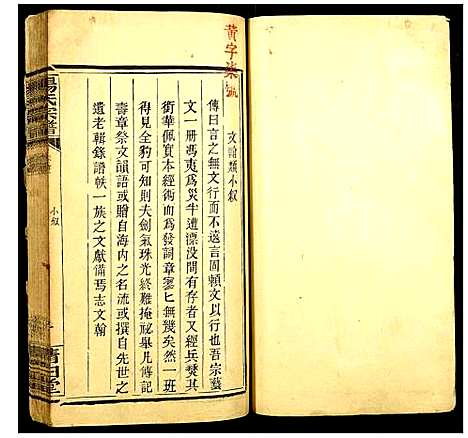 黃字柒號
文翰類小叙
傳曰言之無文行而不遠言固頼文以行也吾宗藝
文一冊馮夷為災半遭漂没間有存者又經兵燹其
銜華佩實本經術而為發詞章寥匕無幾矣然一班
得見全豹可知則夫劍氣珠光終難掩祕舉凡傳記
壽章祭文韻語或贈自海内之名流或撰自先世之
遺老輯錄譜帙一族之文獻備焉志文翰
楊氏宗譜
小叙
清白堂